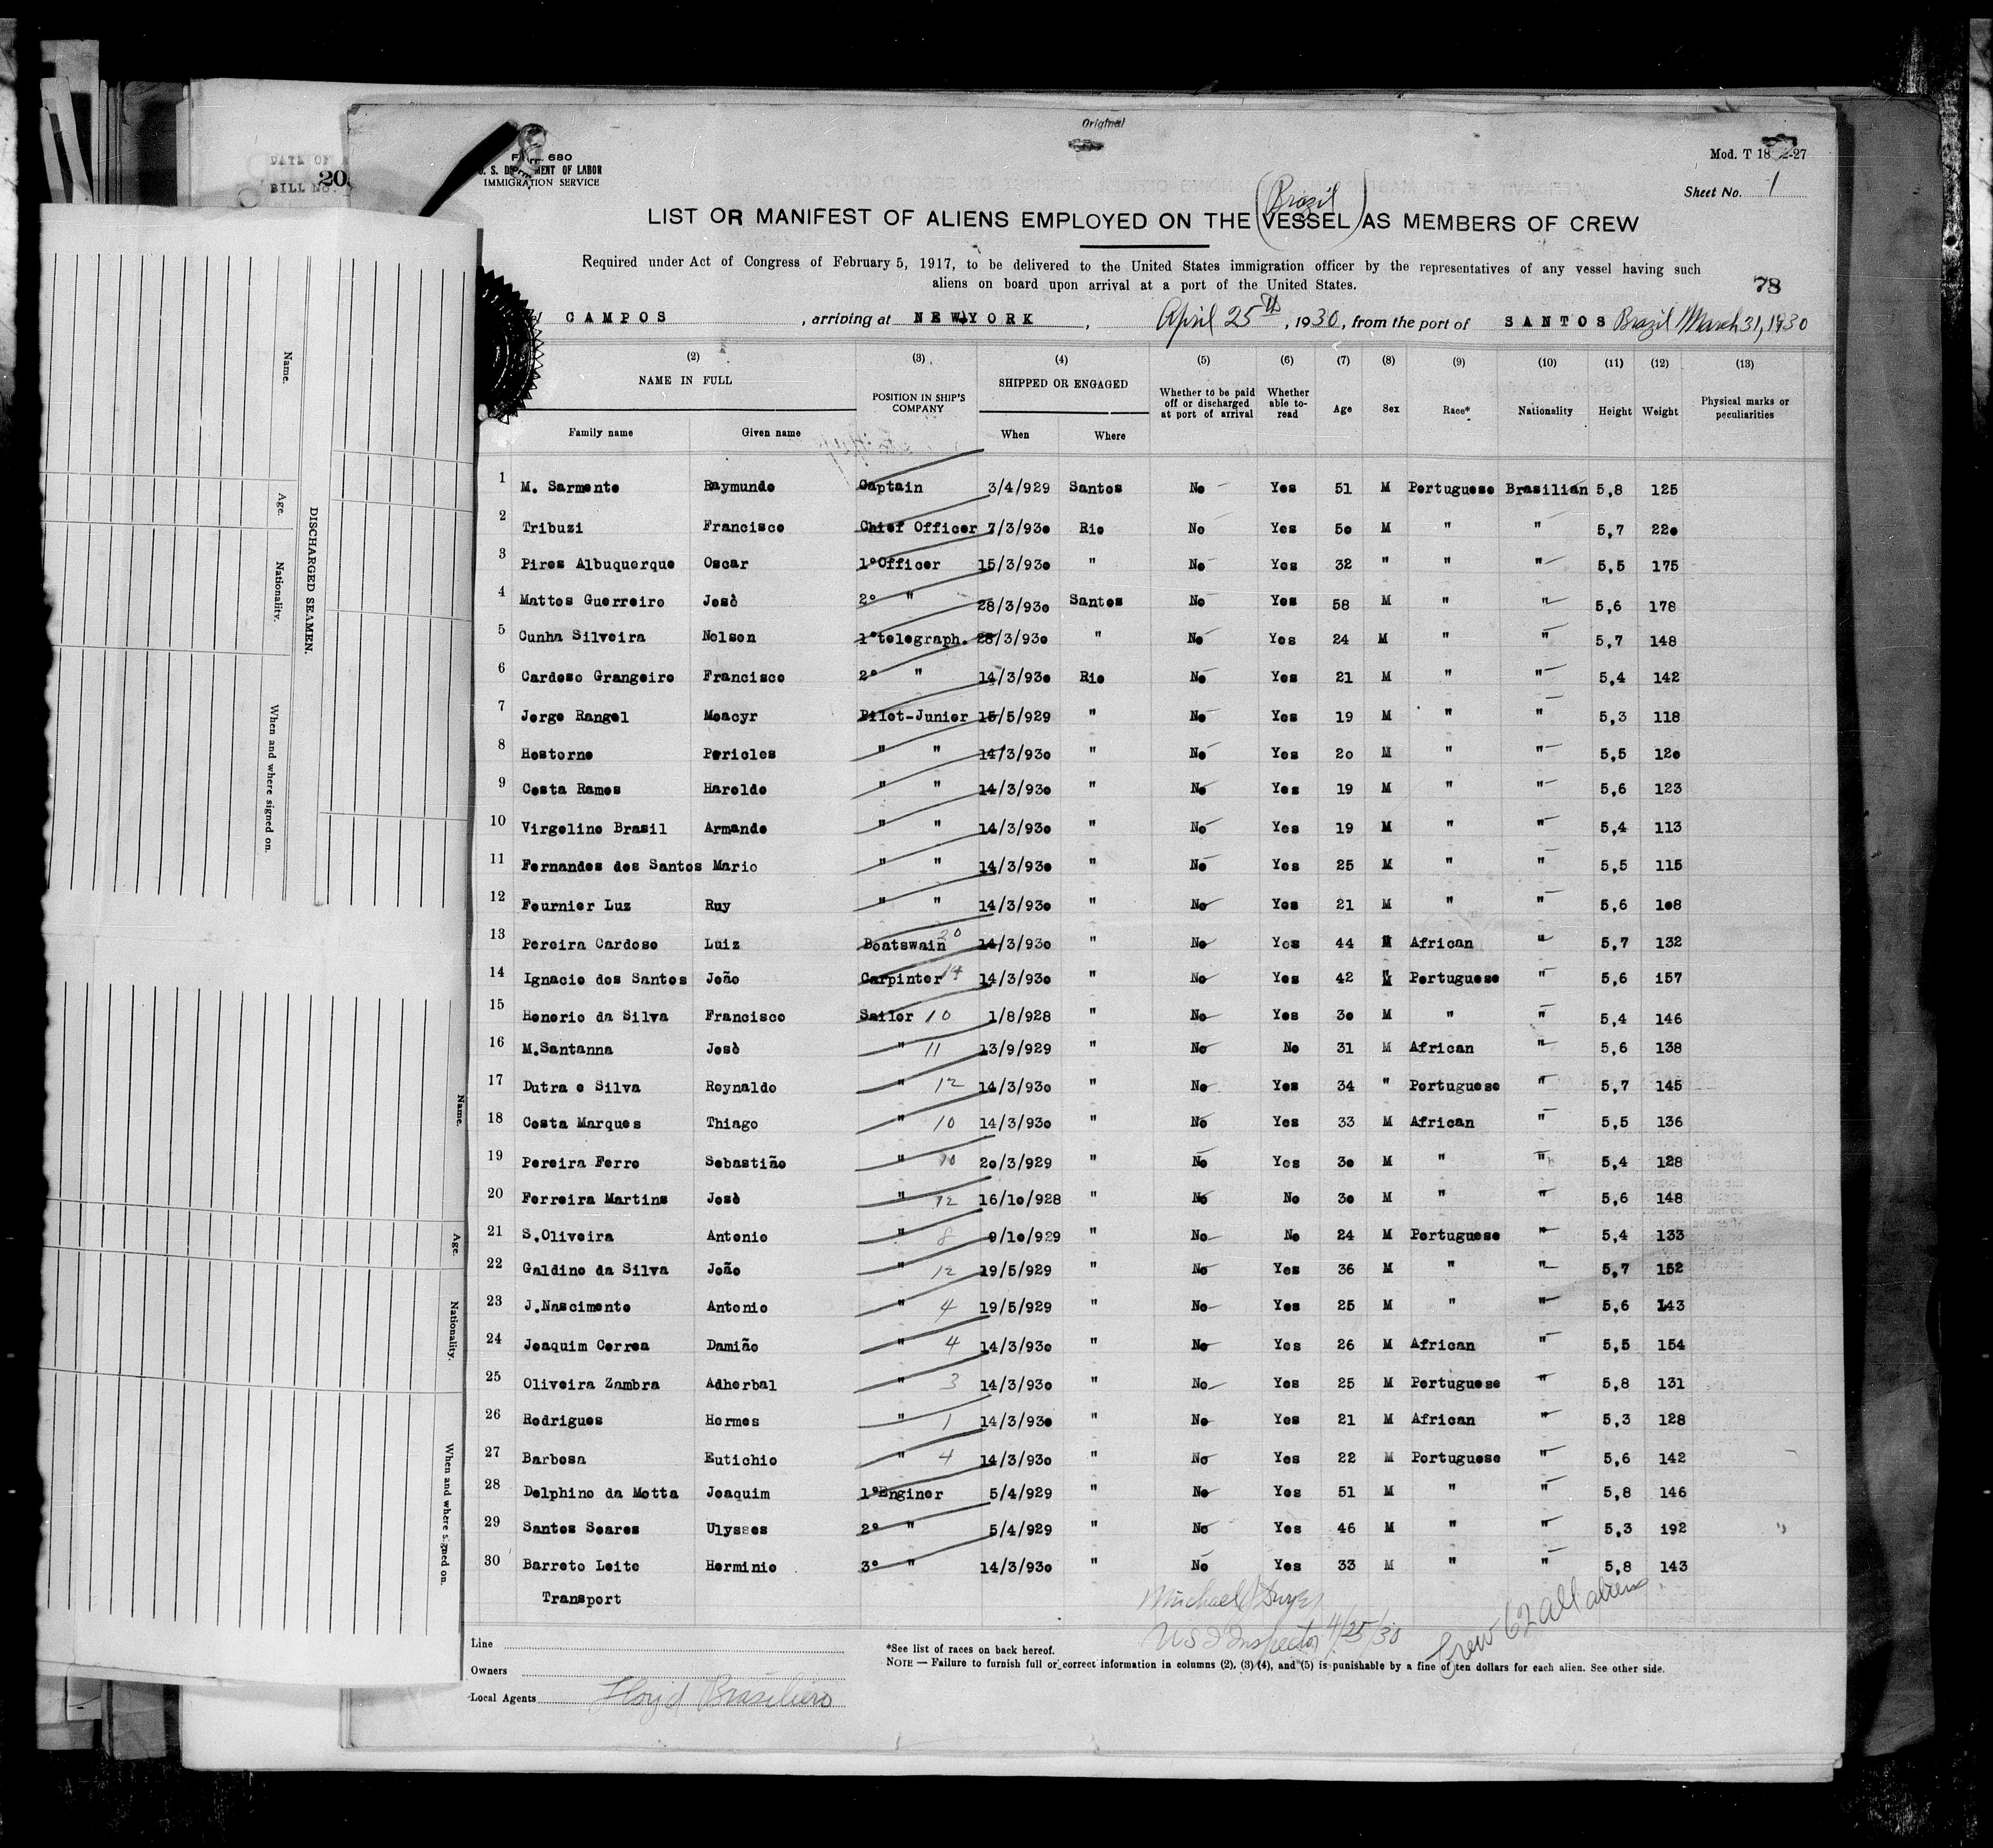 Original
680
MENT OF LABOR
IMMIGRATION SERVICE
Mod. T 18
-27
Sheet No. 1
DATE OF
BILL NO.
20
(Brazil)
LIST OR MANIFEST OF ALIENS EMPLOYED ON THE VESSEL AS MEMBERS OF CREW
Required under Act of Congress of February 5, 1917, to be delivered to the United States immigration officer by the representatives of any vessel having such
aliens on board upon arrival at a port of the United States.
78
CAMPOS, arriving at NEW YORK, April 25th, 1930, from the port of SANTOS Brazil March 31, 1930
(2) (3) (4) (5) (6) (7) (8) (9) (10) (11) (12) (13)
NAME IN FULL POSITION IN SHIP'S COMPANY SHIPPED OR ENGAGED Whether to be paid off or discharged at port of arrival Whether able to-read Age Sex Race* Nationality Height Weight Physical marks or peculiarities
Family name Given name When Where
1 M. Sarmento Raymundo Captain 3/4/929 Santos No Yes 51 M Portuguese Brasilian 5,8 125
2 Tribuzi Francisco Chief Officer 7/3/930 Rio No Yes 50 M " " 5,7 220
3 Pires Albuquerque Oscar 1º Officer 15/3/930 " No Yes 32 " " " 5,5 175
4 Mattos Guerreiro Josè 2º " 28/3/930 Santos No Yes 58 M " " 5,6 178
5 Cunha Silveira Nelson 1º telegraph. 28/3/930 " No Yes 24 M " " 5,7 148
6 Cardoso Grangeiro Francisco 2º " 14/3/930 Rio No Yes 21 M " " 5,4 142
7 Jorge Rangel Moacyr Pilot-Junior 15/5/929 " No Yes 19 M " " 5,3 118
8 Hostorno Pericles " " 14/3/930 " No Yes 20 M " " 5,5 120
9 Costa Ramos Haroldo " " 14/3/930 " No Yes 19 M " " 5,6 123
10 Virgolino Brasil Armando " " 14/3/930 " No Yes 19 M " " 5,4 113
11 Fernandes dos Santos Mario " " 14/3/930 " No Yes 25 M " " 5,5 115
12 Fournier Luz Ruy " " 14/3/930 " No Yes 21 M " " 5,6 108
13 Pereira Cardoso Luiz Boatswain 20 14/3/930 " No Yes 44 M African " 5,7 132
14 Ignacio dos Santos João Carpinter 14 14/3/930 " No Yes 42 M Portuguese " 5,6 157
15 Honorio da Silva Francisco Sailor 10 1/8/928 " No Yes 30 M " " 5,4 146
16 M.Santanna Josè " 11 13/9/929 " No No 31 M African " 5,6 138
17 Dutra e Silva Reynaldo " 12 14/3/930 " No Yes 34 " Portuguese " 5,7 145
18 Costa Marques Thiago " 10 14/3/930 " No Yes 33 M African " 5,5 136
19 Pereira Ferro Sebastião " 10 20/3/929 " No Yes 30 M " " 5,4 128
20 Ferreira Martins Josè " 12 16/10/928 " No No 30 M " " 5,6 148
21 S.Oliveira Antonio " 8 9/10/929 " No No 24 M Portuguese " 5,4 133
22 Galdino da Silva João " 12 19/5/929 " No Yes 36 M " " 5,7 152
23 J.Nascimento Antonio " 4 19/5/929 " No Yes 25 M " " 5,6 143
24 Joaquim Correa Damião " 4 14/3/930 " No Yes 26 M African " 5,5 154
25 Oliveira Zambra Adherbal " 3 14/3/930 " No Yes 25 M Portuguese " 5,8 131
26 Rodrigues Hermes " 1 14/3/930 " No Yes 21 M African " 5,3 128
27 Barbosa Eutichio " 4 14/3/930 " No Yes 22 M Portuguese " 5,6 142
28 Delphino da Motta Joaquim 1º Enginer 5/4/929 " No Yes 51 M " " 5,8 146
29 Santos Soares Ulysses 2º " 5/4/929 " No Yes 46 M " " 5,3 192
30 Barreto Leite Herminio 3º " 14/3/930 " No Yes 33 M " " 5,8 143
Transport
Michael Dwyer
US I Inspector 4/25/30
Crew 62 all aliens
Line
Owners
Local Agents Lloyd Brasiliero
*See list of races on back hereof.
NOTE — Failure to furnish full or correct information in columns (2), (3) (4), and (5) is punishable by a fine of ten dollars for each alien. See other side.
DISCHARGED SEAMEN.
Name.
Age.
Nationality.
When and where signed on.
Name.
Age.
Nationality.
When and where signed on.